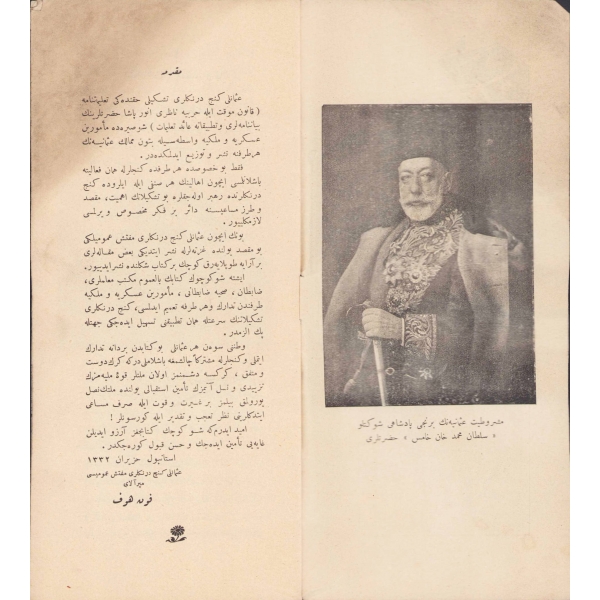 مقدمه
عثمانلی کنج درنکلری تشکیلی حقنده‌کی تعلیماتنامه
( قانون موقت ایله حربیه ناظری انور پاشا حضرتلرینك
بیاننامه‌لری وتطبیقاته عائد تعلیمات ) شو صیره‌ده مأمورین
عسکریه و ملکیه واسطه‌سیله بتون ممالك عثمانیه‌نك
هر طرفنه نشر و توزیع ایدلمکده‌در .
فقط بو خصوصده هر طرفده کنجلرله همان فعالیته
باشلانلسی ایچون اهالینك هر صنفی ایله ایلروده کنج
درنکلرنده رهبر اوله‌جقلره بو تشکیلاتك اهمیت ، مقصد
و طرز مساعیسنه دائر بر فکر مخصوص ویرلسی
لازمکلیور .
بونك ایچون عثمانلی کنج درنکلری مفتش عمومیلکی
بو مقصد یولنده غزته‌لرله نشر ایتدیکی بعض مقاله‌لری
بر آرایه طوپلایه‌رق کوچك بر کتاب شکلنده نشر ایدییور .
ایشته شو کوچوك کتابك بالعموم مکتب معلملری ،
ضابطان ، صحیه ضابطانی ، مأمورین عسکریه و ملکیه
طرفندن تدارك وهر طرفه تعمیم ایدلسی ، کنج درنکلری
تشکیلاتنك سرعتله همان تطبیقنی تسهیل ایده‌جکی جهتله
پك الزمدر .
وطنی سوه‌ن هر عثمانلی بو کتابدن بر دانه تدارك
ایتملی و کنجلرله مشترکاً چالشمغه باشلاملی‌درکه کرك دوست
و متفق ، کرکسه دشمنمز اولان ملتلر قوهٔ ملیه‌مزك
تزییدی و نسل آتیمزك تأمین استقبالی یولنده ملتك نصل
یورولق بیلمز بر غیرت و قوت ایله صرف مساعی
ایتدکلرینی نظر تعجب و تقدیر ایله کورسونلر !
امید ایدرم که شو کوچك کتابجغز آرزو ایدیلن
غایه‌یی تأمین ایده‌جك و حسن قبول کوره‌جکدر .
استانبول حزیران ١٣٣٢
عثمانلی کنج درنکلری مفتش عمومیسی
میرآلای
فون هوف
مشروطیت عثمانیه‌نك برنجی پادشاهی شوکتلو
« سلطان محمد خان خامس » حضرتلری